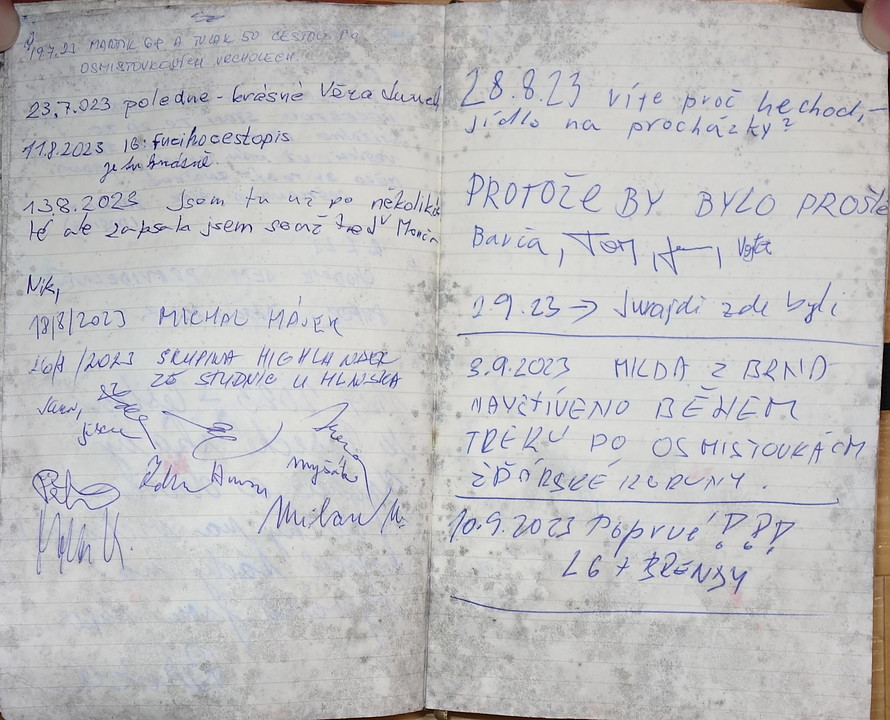 19.7.23 MARTIK GR A TULAK 50 CESTOU PO
OSMISTOVKOVÝCH VRCHOLECH
23.7.023 poledne - krásné Věra
11.8.2023 IG: fucihocestopis
je tu krásně.
13.8.2023 Jsem tu už po několiká
té ale zapsala jsem se až teď
Nik,
18/8/2023 MICHAL HÁJEK
/2023 SKUPINA
ZE STUDNIC U HLINSKA
Jana,
myšák
Milan K.
28.8.23 víte proč nechodí
jídlo na procházky?
PROTOŽE BY BYLO PROŠLÉ
Barča, Tom, Vojta
2.9.23 → Jurajdi zde byli
3.9.2023 MILDA Z BRNA
NAVŠTÍVENO BĚHEM
TREKU PO OSMISTOVKÁCH
ŽĎÁRSKÉ KORUNY.
10.9.2023 Poprvé!
LG + BRENDY